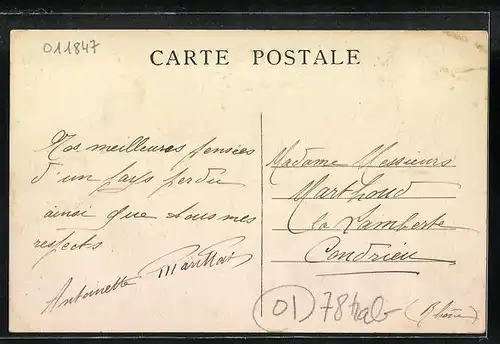 011847
CARTE POSTALE
Mes meilleures pensées
d'un pays perdu
ainsi que tous mes
respects
Antoinette
Madame Messieurs
Marthoud
la Lamberte
Condrieu
(Rhône)
01 78